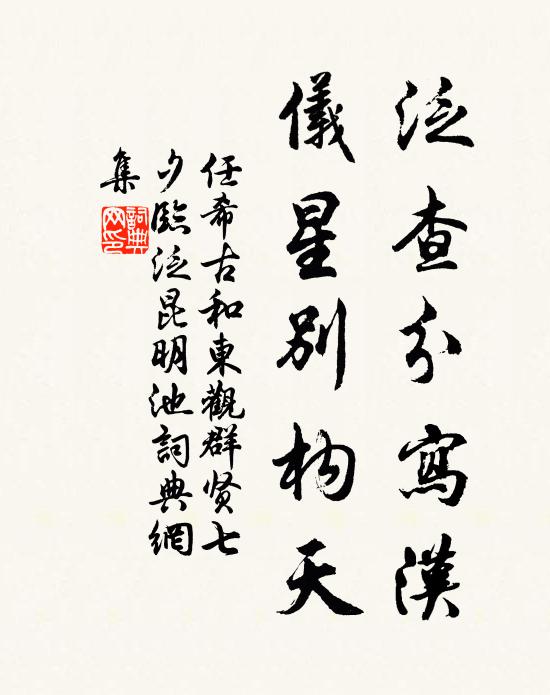 泛查分寫漢
儀星別构天
任希古和東觀群贤七
夕臨泛昆明池詞典網
集
詞典
网印